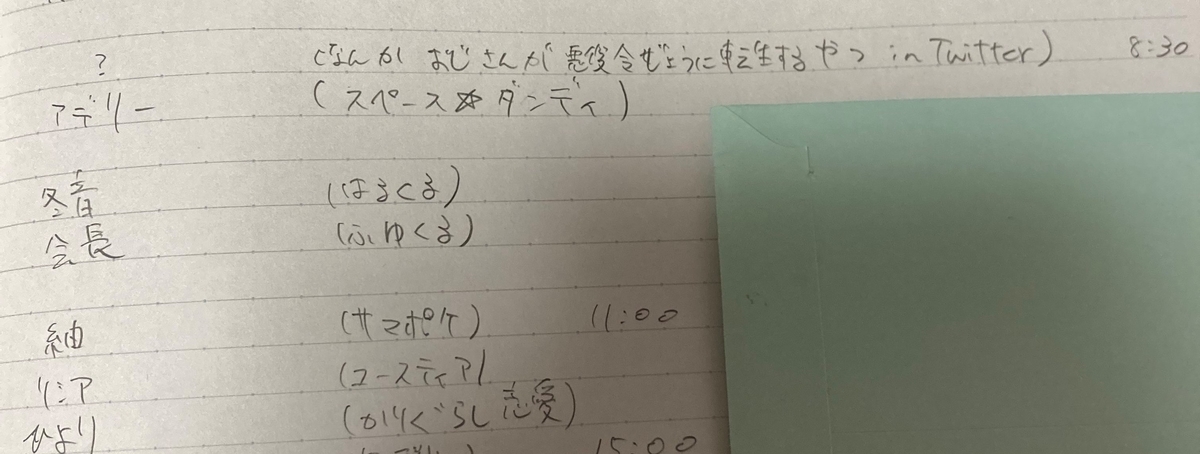 ? (なんか おじさんが 悪役令じょうに転生するやつ in Twitter) 8:30
アデリー (スペース☆ダンディ)
冬音 (はるくる)
会長 (ふゆくる)
紬 (サマポケ) 11:00
リシア (ユースティア)
ひより (かりぐらし恋愛)
15:00